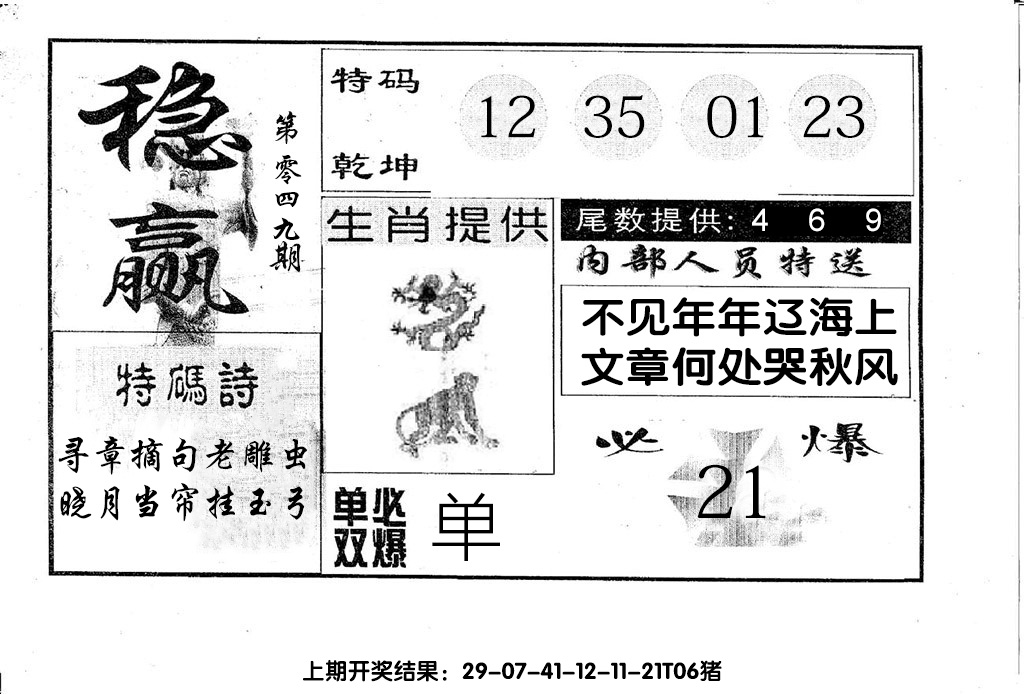 稳赢
第零四九期
特码
乾坤
12 35 01 23
生肖提供
尾数提供: 4 6 9
内部人员特送
不见年年辽海上
文章何处哭秋风
特碼詩
寻章摘句老雕虫
晓月当帘挂玉弓
单双
必爆
单
必爆
21
上期开奖结果：29-07-41-12-11-21T06猪